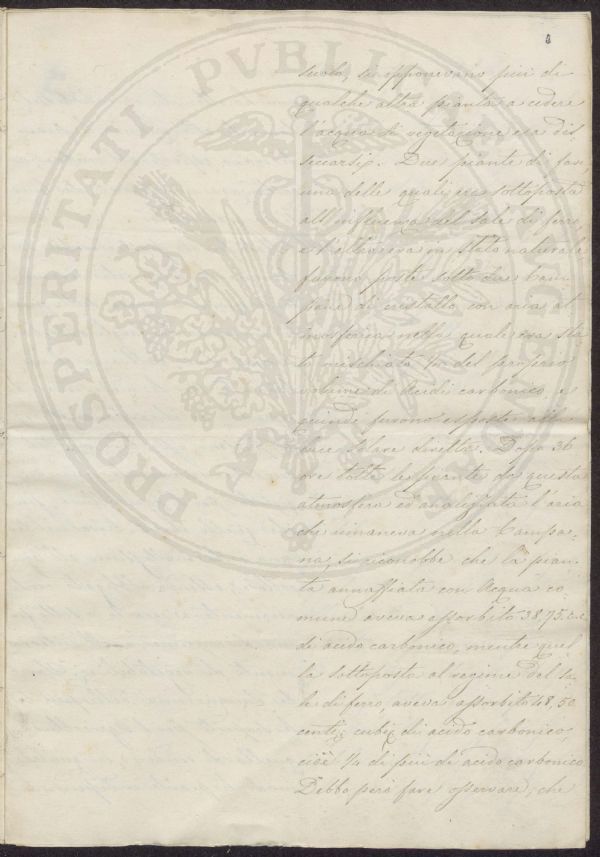 PROSPERITATI PVBLICAE
suolo, si opponevano piú di
qualche altra pianta a cedere
l'acqua di vegetazione era dis
seccarsi. Due piante di fave
una delle quali era sottoposta
all'influenza del sale di ferro,
e l'altra era in stato naturale
furono poste sotto due Cam
pane di cristallo con aria at
mosferica nella quale era sta
to mischiato del proprio
volume di Acido carbonico e
quindi furono esposte alla
luce solare diretta. Dopo 36
ore tolte le piante da questa
atmosfera ed analizzata l'aria
che rimaneva nella Campa-
na, si riconobbe che la pian
ta annaffiata con Acqua co
mune aveva assorbito 38,75
di acido carbonico, mentre quel
la sottoposta al regime del sa-
le di ferro, aveva assorbito 48,50
cubi di acido carbonico,
cioè 1/4 di piú di acido carbonico
Debbo peró fare osservare, che